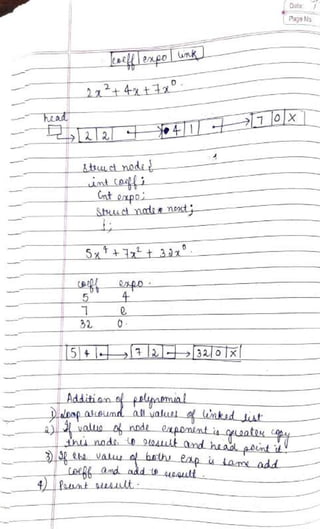 Date: /
Page No.
coeff expo link
2x² + 4x + 7x⁰.
head
2 2 4 1 7 0 X
struct node {
int coeff;
int expo;
struct node * next;
};
5x⁴ + 7x² + 32x⁰.
coeff expo.
5 4
7 2
32 0.
5 4 7 2 32 0 X
Addition of polynomial
1) Loop around all values of linked list
2) If value of node exponent is greater copy
this node to result and head point it
3) If the value of bothe exp is same add
coeff and add to result.
4) Print result.